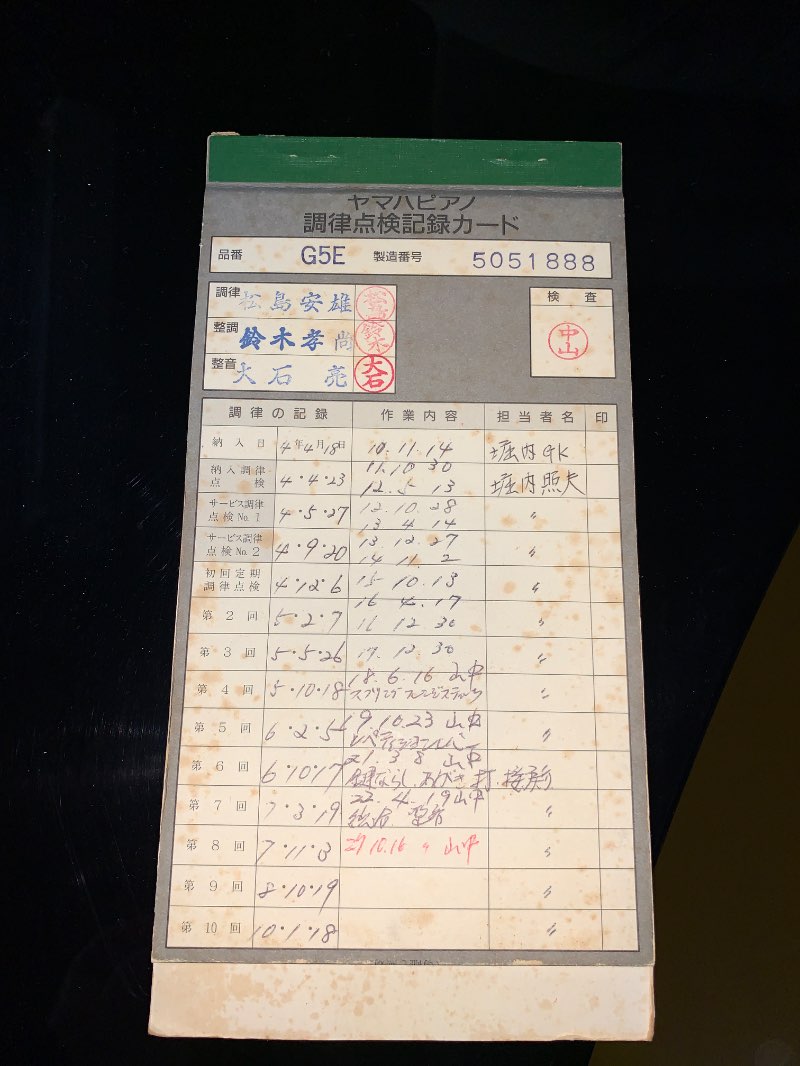 ヤマハピアノ
調律点検記録カード
品番 G5E 製造番号 5051888
調律 松島安雄 松島 検査
整調 鈴木孝尚 鈴木 中山
整音 大石亮 大石
調律の記録 作業内容 担当者名 印
納入日 4年4月18日 10.11.14 堀内GK
納入調律点検 4・4・23 11.10 30 堀内照夫
12. 5. 13
サービス調律点検No.1 4・5・27 12.10.28 〃
13 4 14
サービス調律点検No.2 4・9・20 13.12.27 〃
14 11. 2
初回定期調律点検 4・12・6 15 10.13 〃
16 4.17
第2回 5・2・7 16 12 30 〃
第3回 5・5・26 17. 12. 30 〃
第4回 5・10・18 18.6.16 山中 〃
第5回 6・2・5 19 10.23 山中 〃
レペティションレバー
第6回 6・10・17 21.3 8 山中
鍵ならし
第7回 7・3・19 22.4.19 山中 〃
第8回 7・11・3 27 10.16 〃 山中 〃
第9回 8・10・19 〃
第10回 10・1・18 〃